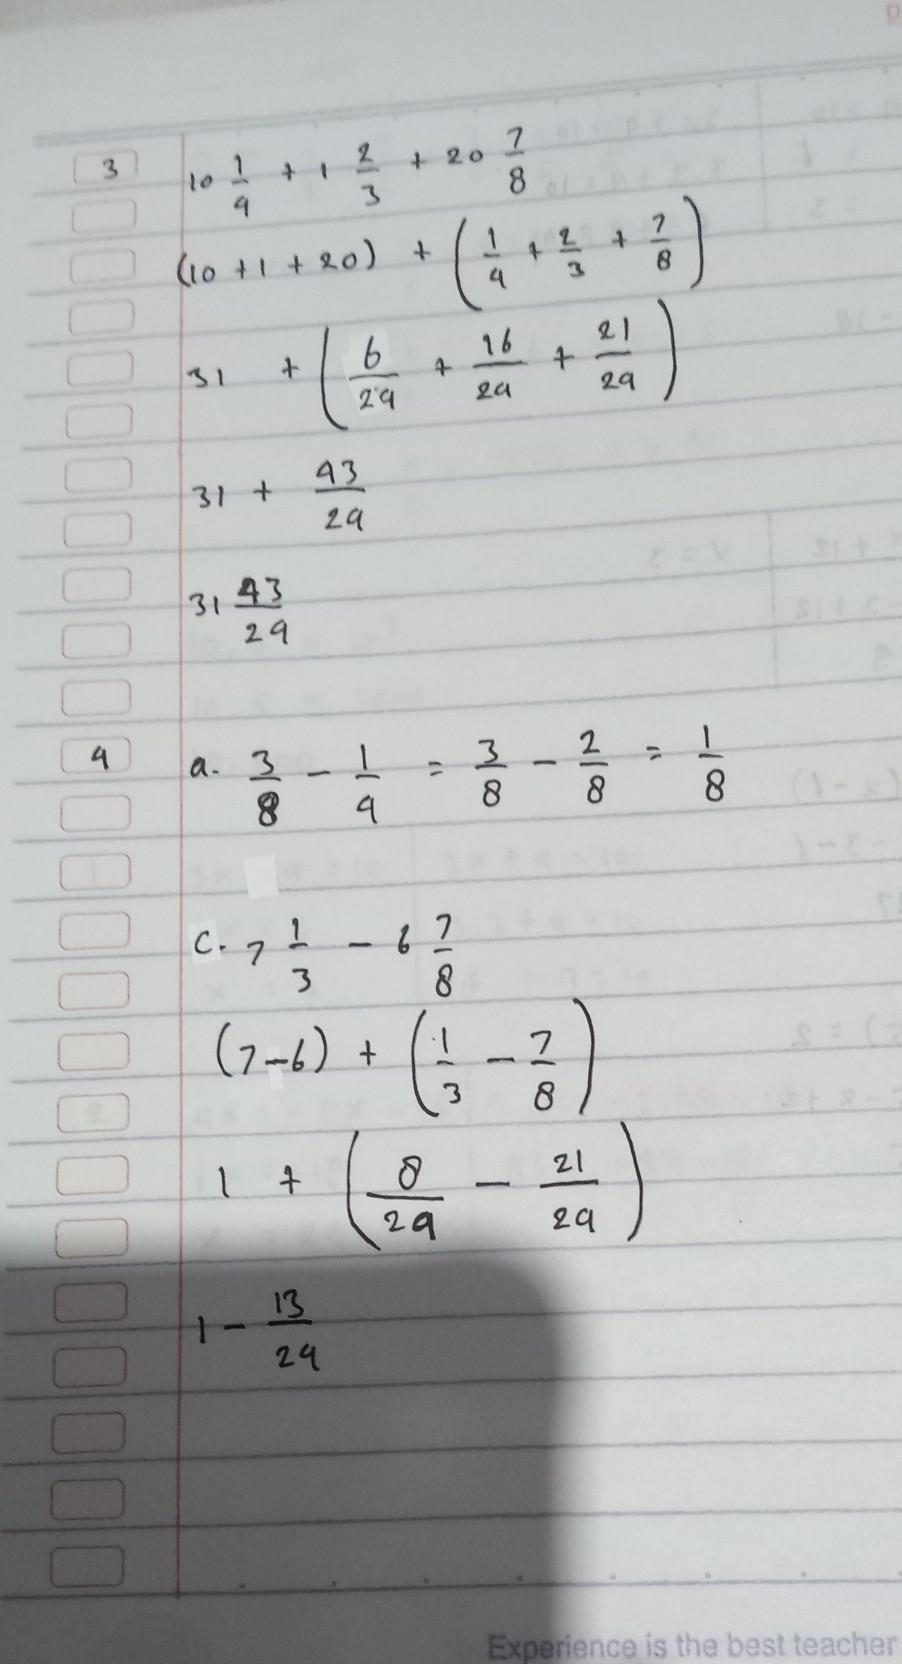 3 10 1/4 + 1 2/3 + 20 7/8
(10 + 1 + 20) + (1/4 + 2/3 + 7/8)
31 + (6/24 + 16/24 + 21/24)
31 + 43/24
31 43/24
4 a. 3/8 - 1/4 = 3/8 - 2/8 = 1/8
c. 7 1/3 - 6 7/8
(7-6) + (1/3 - 7/8)
1 + (8/24 - 21/24)
1 - 13/24
Experience is the best teacher